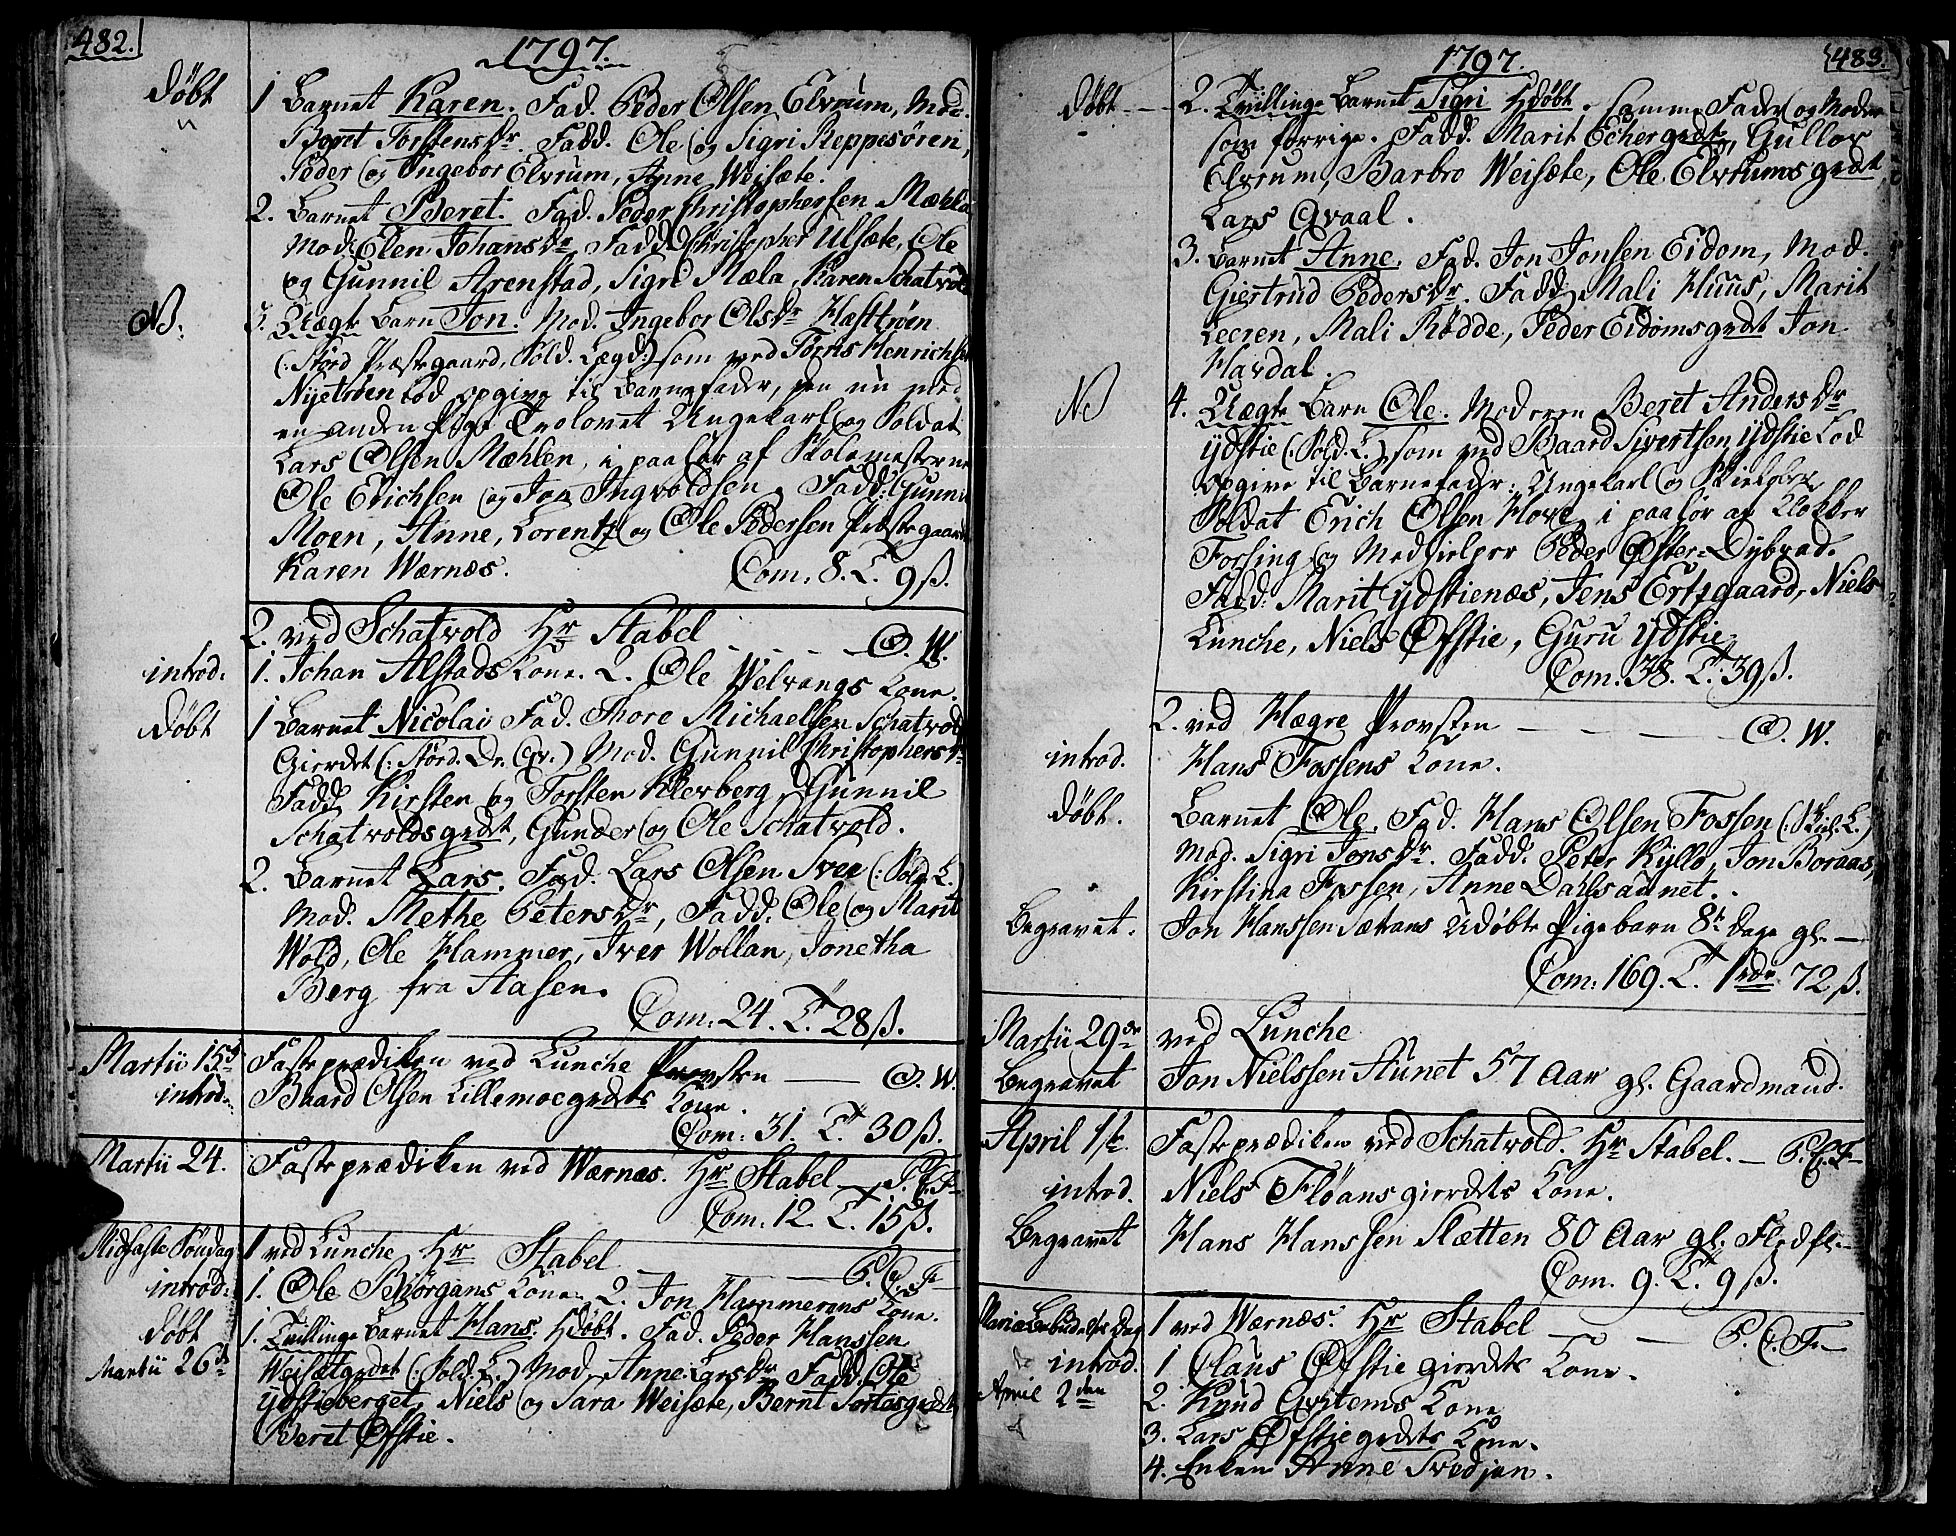 482.
1797.
døbt
1 Barnet Karen. Fad. Peder Olsen Elvrum, Mod.
Beret Torstensdr. Fadd. Ole og Sigri Reppesøren,
Peder og Ingebor Elvrum, Anne Weisæte.
2. Barnet Beret. Fad. Peder Christophersen Mæhla
Mod. Elen Johansdr. Fadd. Christopher Ulsæte, Ole
og Gunnil Arenstad, Sigri Mæla, Karen Schatvold
NB.
3. Uægte Barn Jon. Mod. Ingebor Olsdr Hafttrøen
(: Størd Præstegaard, Sold. Lægd:) som ved Torris Henrichsen
Nyetrøen lod opgive til Barnefader, den nu med
en anden Pige Trolovet Ungekarl og Soldat
Lars Olsen Mæhlen, i paahør af Skolemesterne
Ole Erichsen og Jon Ingvoldsen. Fadd: Gunnil
Moen, Anne, Lorentz og Ole Pedersen Præstegaard
Karen Wærnæs. Com. 8. T. 9 ß.
2. ved Schatvold Hr Stabel - - - O. W.
introd. 1. Johan Alstads Kone. 2. Ole Welvangs Kone.
døbt 1 Barnet Nicolai Fad. Thore Michaelsen Schatvold
Gierdet (: Størd. Dr. Qv.) Mod. Gunnil Christophersdr
Fadd Kirsten og Torsten Klevberg, Gunnil
Schatvoldsgedt, Gunder og Ole Schatvold.
2. Barnet Lars. Fad. Lars Olsen Svee (: Sold. L.)
Mod. Methe Petersdr, Fadd. Ole og Marit
Wold, Ole Hammer, Iver Wollan, Jonetha
Berg fra Aasen.
Com. 24. T. 28 ß.
Martii 15de Fasteprædiken ved Lunche Provsten — O. W.
introd. Baard Olsen Lillemoegedets Kone.
Com: 31. T. 30 ß.
Martii 24. Fasteprædiken ved Wærnæs. Hr Stabel — P. C. F.
Com. 12. T. 15 ß.
Midfaste Søndag 1 ved Lunche Hr Stabel — P. C. F.
introd. 1. Ole Biørgans Kone. 2. Jon Hammerens Kone.
døbt 1. Tvillinge Barnet Hans. Hdøbt. Fad. Peder Hanssen
Martii 26de Weisætgedet (: Sold. L.) Mod. Anne Larsdr Fadd. Ole
Ydstieberget, Niels og Sara Weisæte, Bernt Fortasgedet
Beret Øfstie.
483.
1797.
døbt — 2. Tvillinge Barnet Sigri Hdøbt. samme Fader og Moder
som forrige. Fadd. Marit Echergedt, Gullov
Elvrum, Barbro Weisæte, Ole Elvrumsgedt,
Lars Qvaal.
3. Barnet Anne. Fad. Jon Jonsen Eidom, Mod.
Giertrud Pedersdr. Fadd. Mali Huus, Marit
Leeren, Mali Rødde, Peder Eidomsgedt Jon
Havdal.
NB
4. Uægte Barn Ole. Moderen Beret Andersdr
Ydstie (: Sold. L.) som ved Baard Sivertsen Ydstie lod
opgive til Barnefader: Ungekarl og Skieløber
Soldat Erich Olsen Hove i paahør af Klokker
Forsing og Medhielper Peder Øster-Dybvad.
Fadd: Marit Ydstienæs, Jens Ertsgaard, Niels
Lunche, Niels Øfstie, Guru Ydstie
Com. 38. T. 39 ß.
2. ved Hægre Provsten - - - O. W.
introd. Hans Fossens Kone.
døbt. Barnet Ole. Fad. Hans Olsen Fossen (: Skiel. L.)
Mod. Sigri Jonsdr. Fadd. Peter Kyllo, Jon Boraas,
Kirstina Fossen, Anne Dahlsaunet.
Begravet. Jon Hanssen Sætrans Udøbte Pigebarn 8te Dage gl. —
Com: 169. T. 1 rdr 72 ß.
Martii 29de ved Lunche
Begravet Jon Nielssen Aunet 57 Aar gl. Gaardmand.
April 1ste Fasteprædiken ved Schatvold. Hr Stabel. — P. C. F.
introd. Niels Fløans gierdets Kone.
Begravet Hans Hanssen Slætten 80 Aar gl. Fledf. —
Com. 9. T. 9 ß.
Mariæ Bebudelses Dag 1 ved Wærnæs. Hr Stabel — P. C. F.
introd. 1 Claus Øfstie gierdets Kone.
April 2den 2. Knud Qvitems Kone
3. Lars Øfstiegedets Kone.
4. Enken Anne Svedjen.